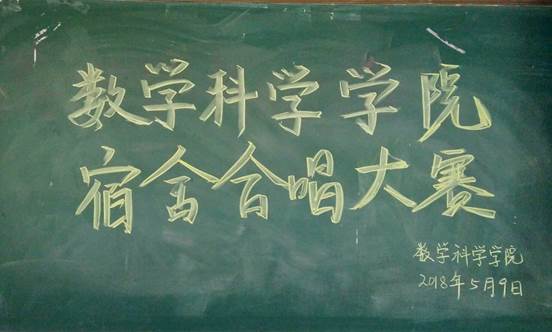 数学科学学院
宿舍合唱大赛
数学科学学院
2018年5月9日